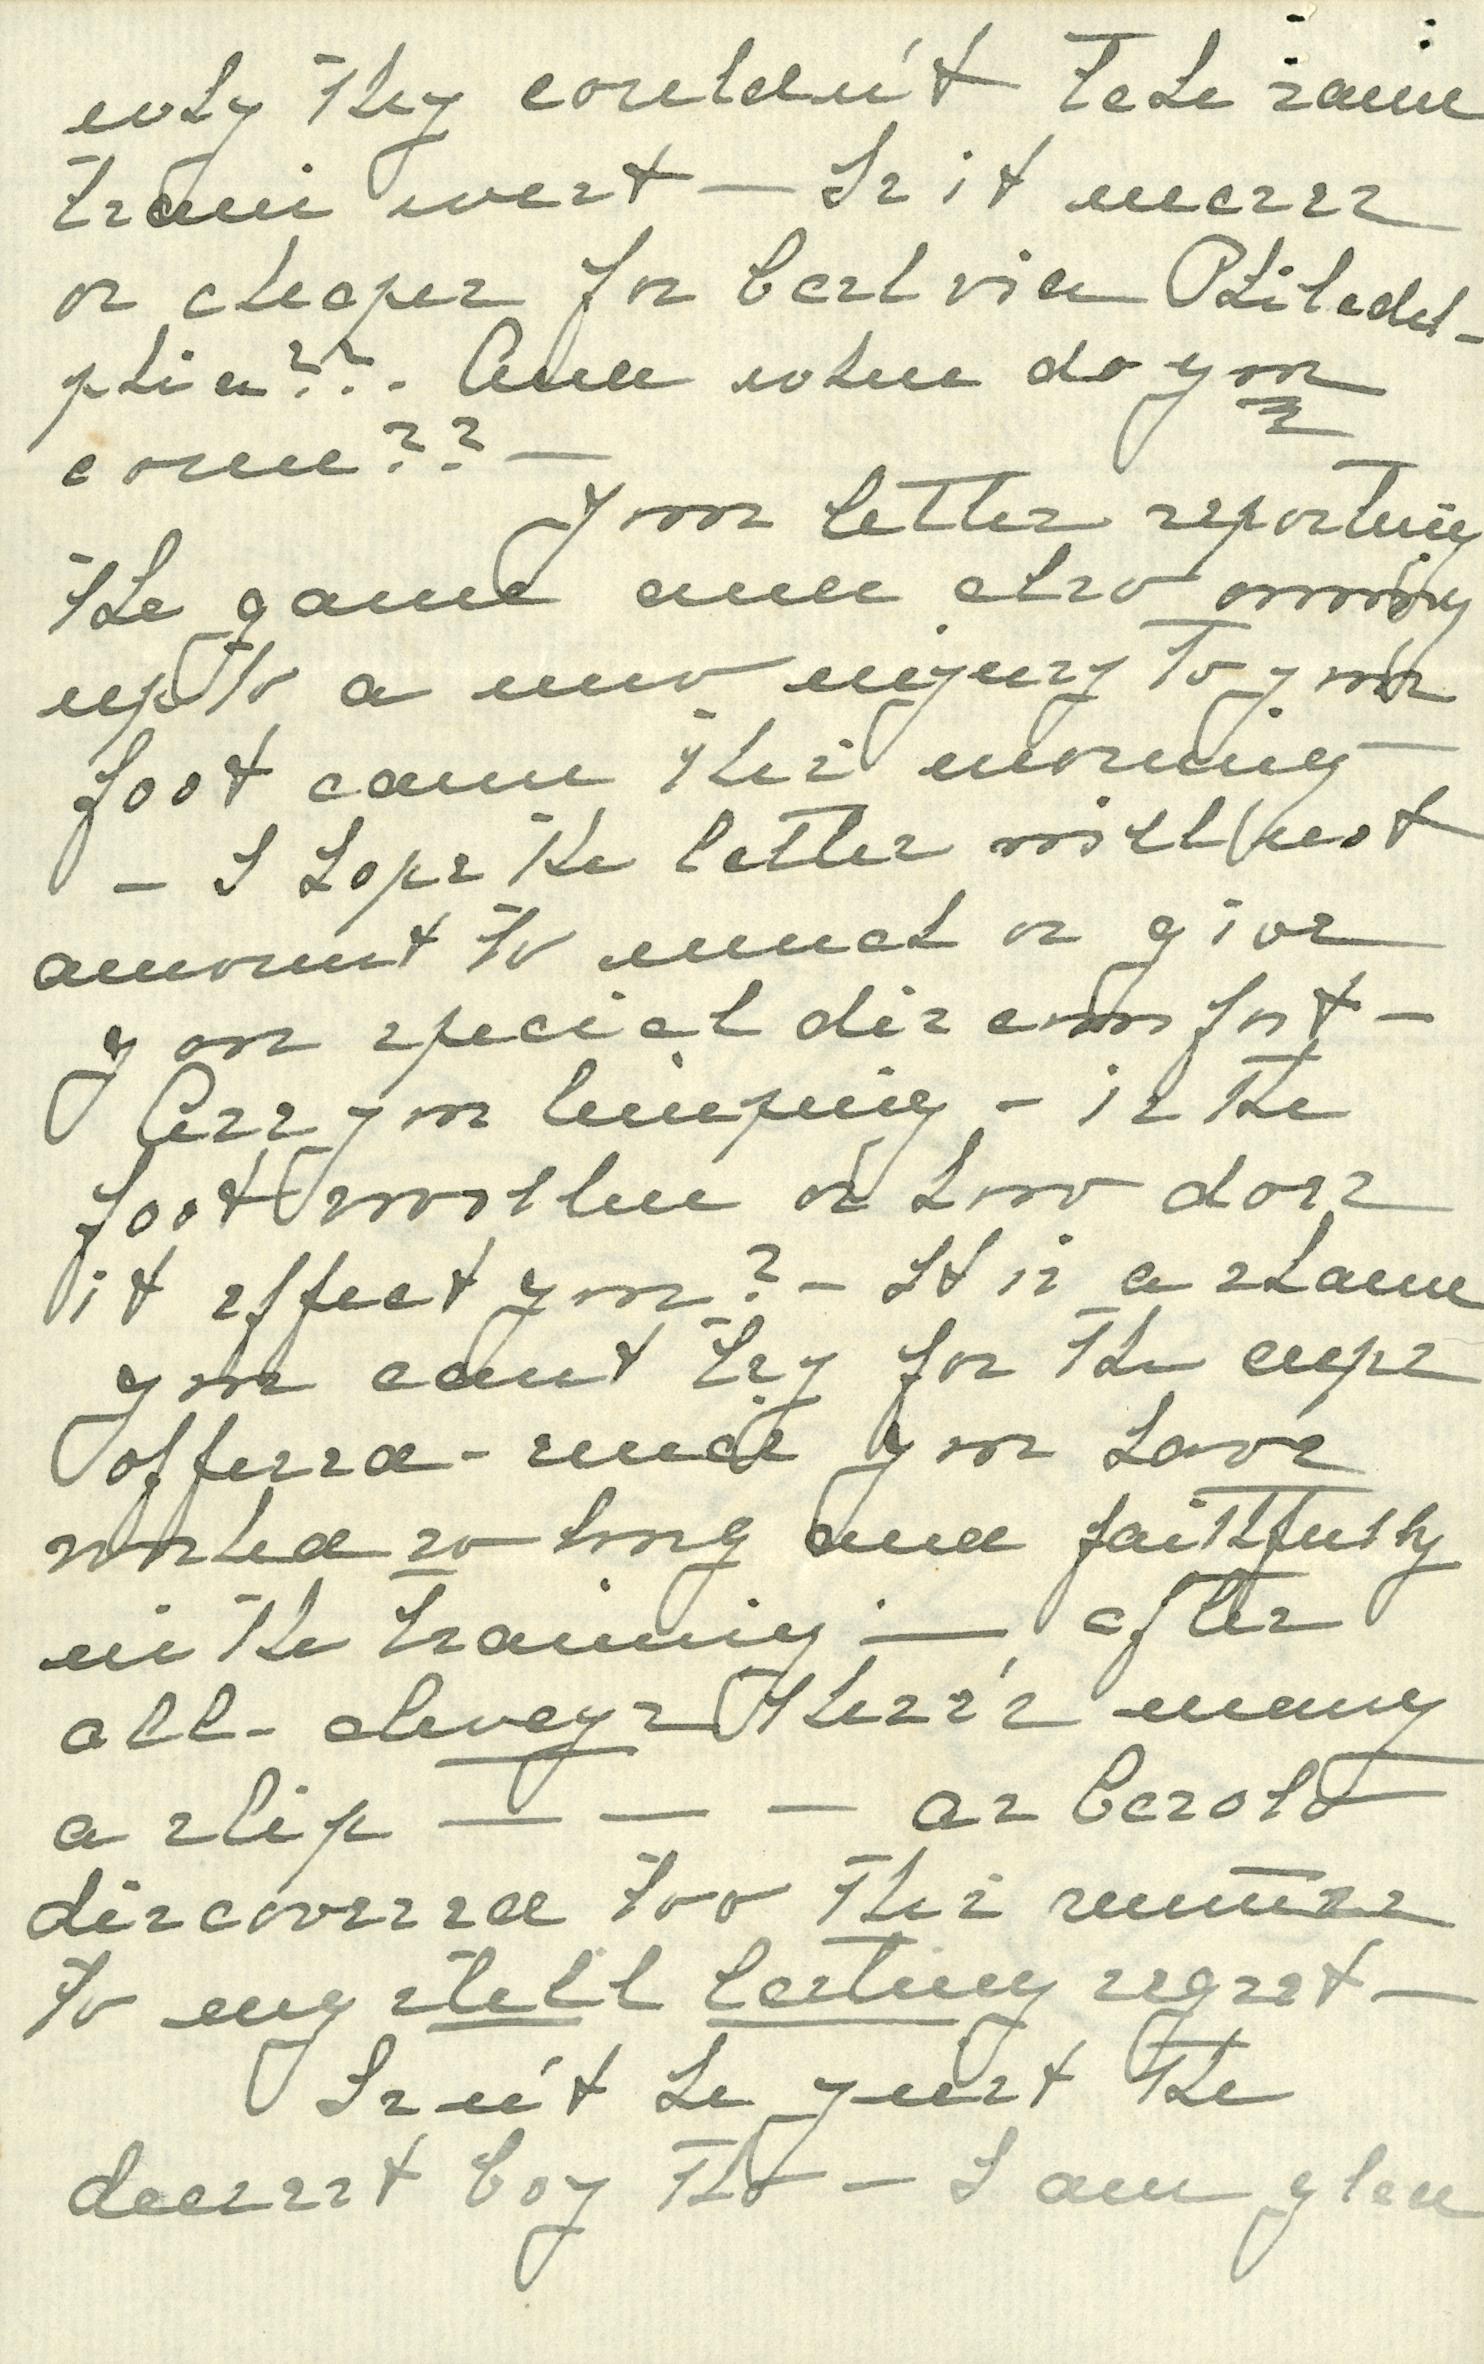 why they couldn't take same
train west — Is it nearer
or cheaper for Carl via Philadel-
phia??. And when do you
come?? —
Your letter reporting
the game and also owning
up to a new injury to your
foot came this morning —
– I hope the latter will not
amount to much or give
you special discomfort –
Are you limping – is the
foot swollen or how does
it effect you? – It is a shame
you can't try for the cups
offered – since you have
worked so long and faithfully
in the training – after
all – always there's many
a slip — — — as Carol
discovered too this summer
to my still lasting regret —
Isn't he just the
dearest boy tho – I am glad